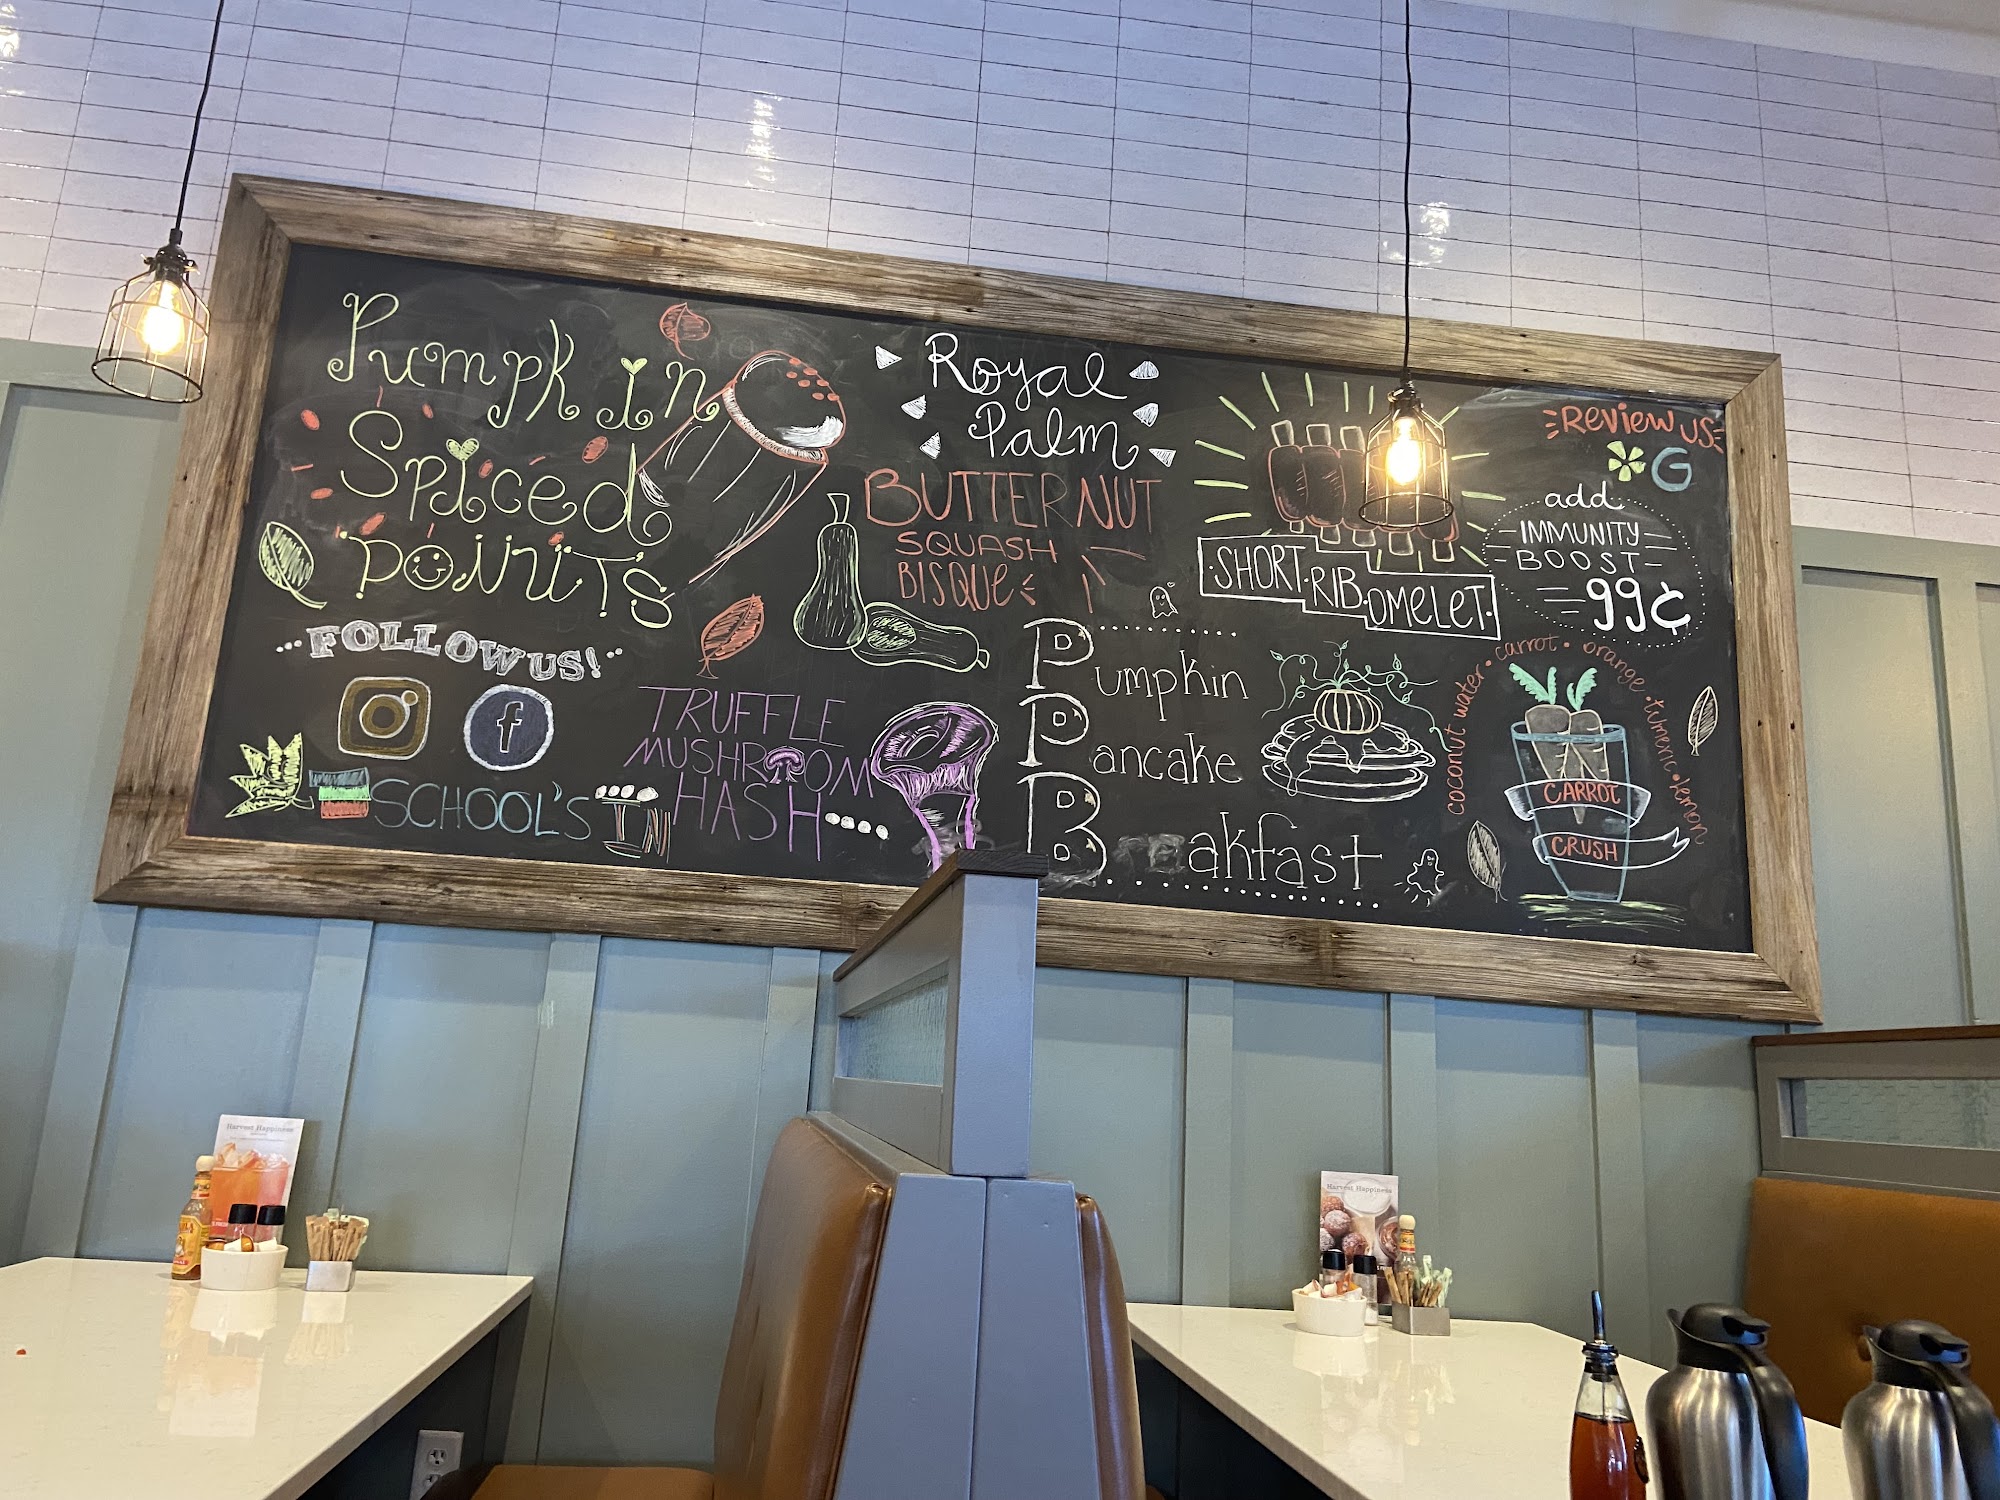 Pumpkin
Spiced
DONUT'S
FOLLOW US!
f
SCHOOL'S IN
TRUFFLE
MUSHROOM
HASH
Royal
Palm
BUTTERNUT
SQUASH
BISQUE
Pumpkin
Pancake
B akfast
SHORT RIB OMELET
REVIEW US
G
add
IMMUNITY
BOOST
99¢
coconut water • carrot • orange • tumeric • lemon
CARROT
CRUSH
Harvest Happiness
Harvest Happiness